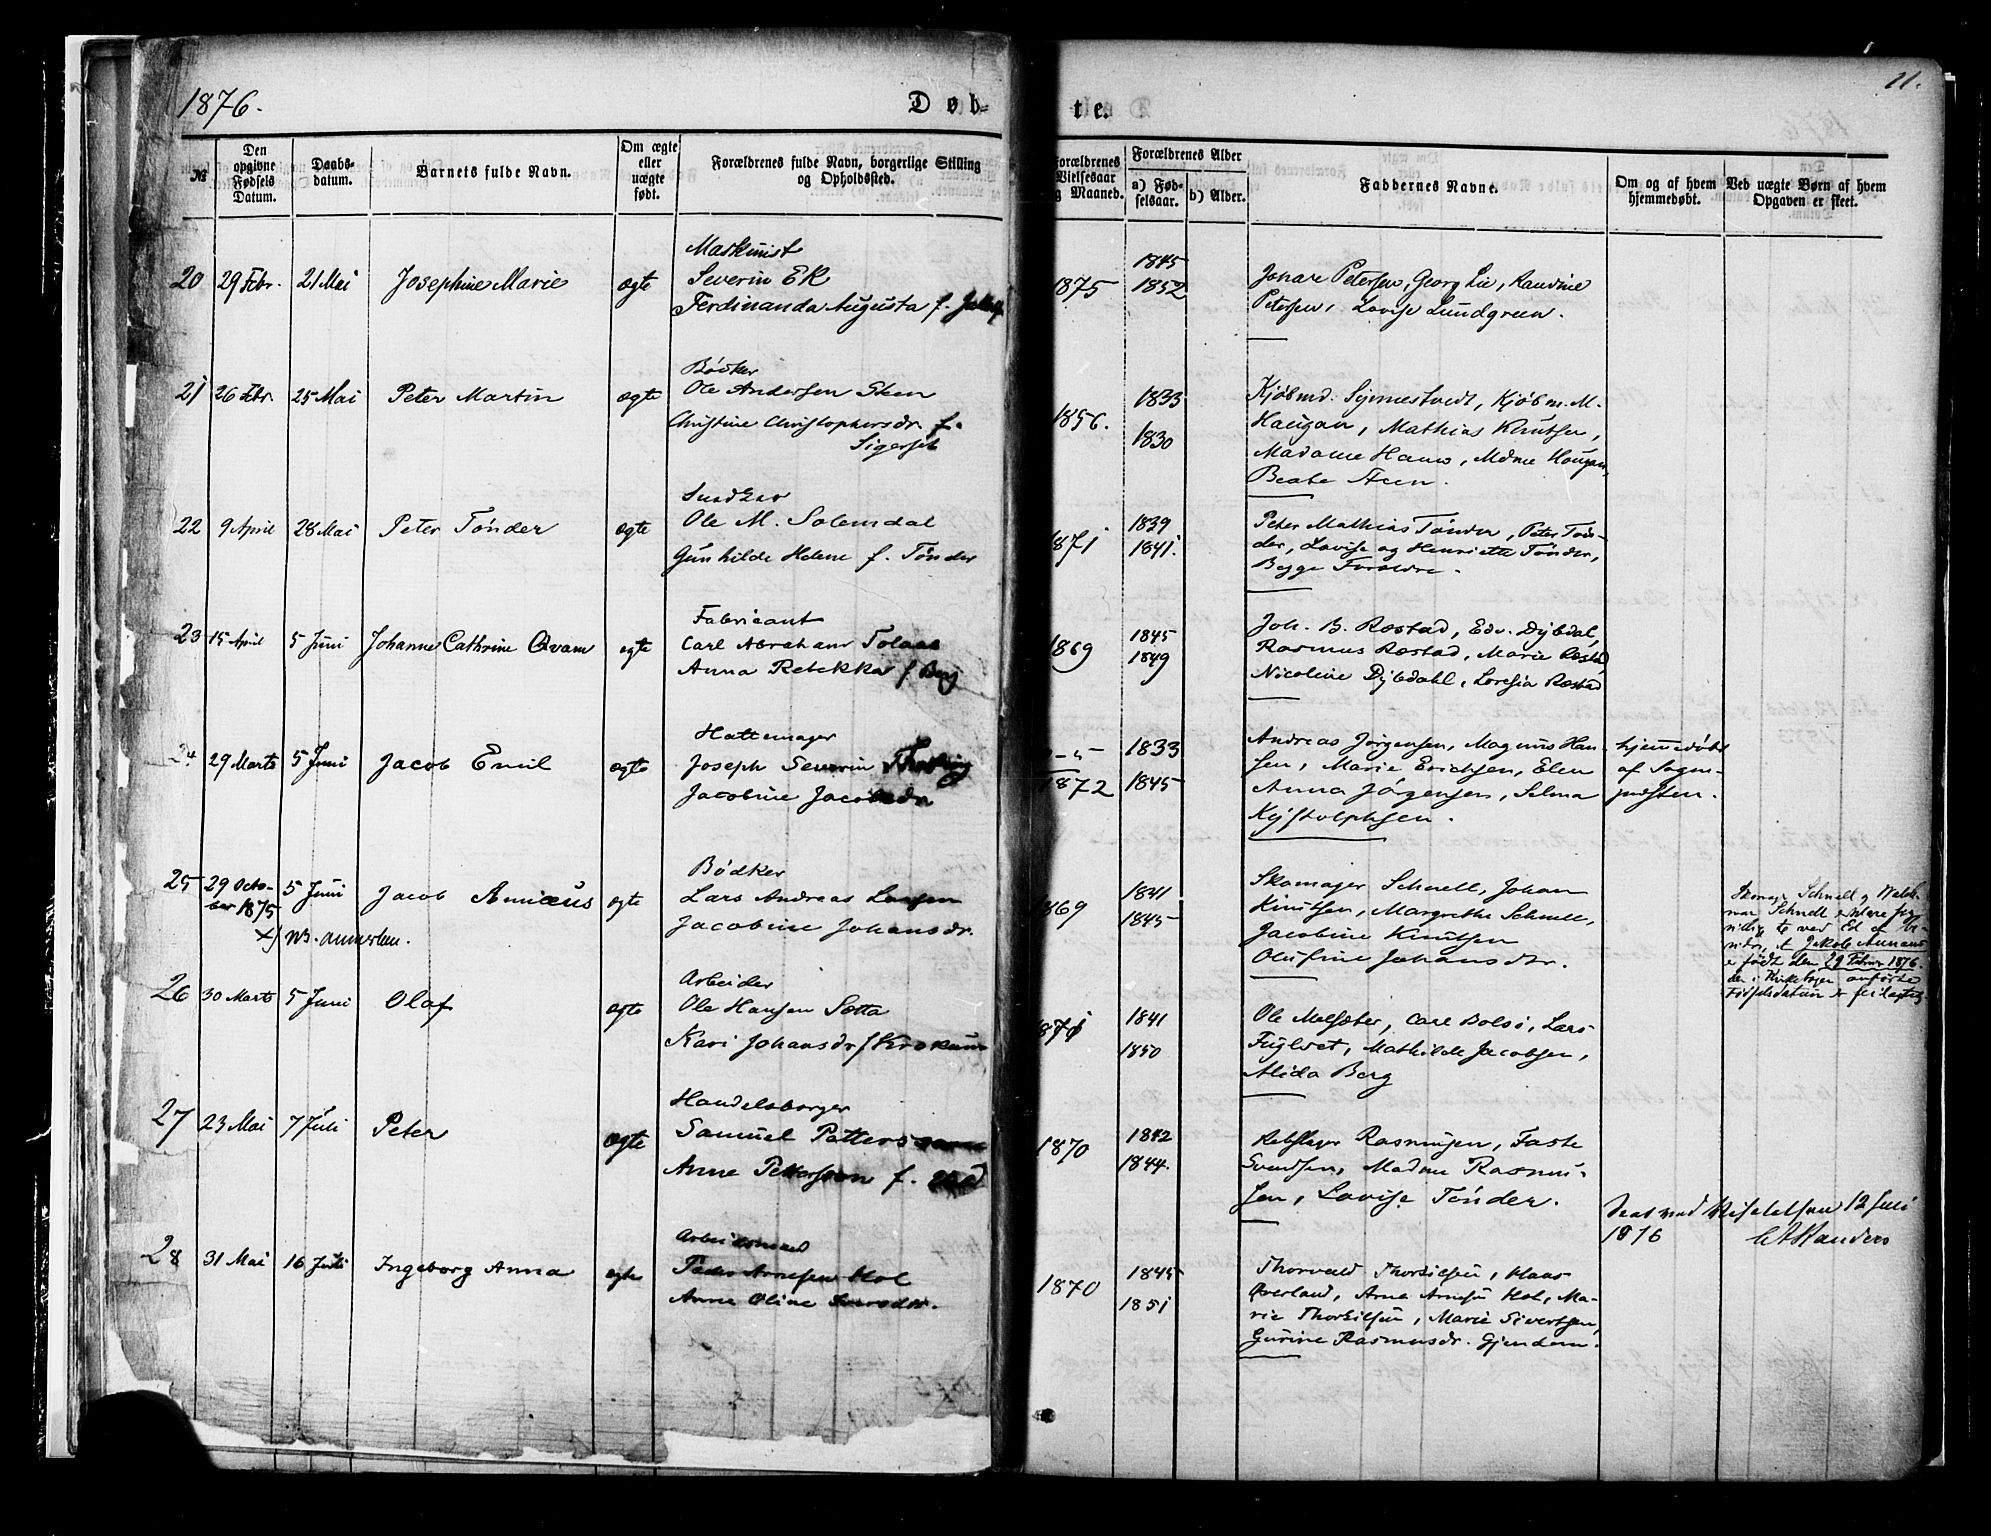 1876.
Døb-
te.
11.
№
Den opgivne Fødsels Datum.
Daabs-datum.
Barnets fulde Navn.
Om ægte eller uægte født.
Forældrenes fulde Navn, borgerlige Stilling og Opholdssted.
Forældrenes Vielsesaar og Maaned.
Forældrenes Alder
a) Fød-selsaar.
b) Alder.
Faddernes Navne.
Om og af hvem hjemmedøbt.
Ved uægte Børn af hvem Opgaven er skeet.
Maskinist
20 29 Febr. 21 Mai Josephine Marie ægte Severin Ek
Ferdinanda Augusta f.
1875 1845
1852
Jonare Petersen, Georg Lie, Randine
Petersen, Lovise Lundgreen.
Bødker
21 26 Febr. 25 Mai Peter Martin ægte Ole Andersen Steen
Christine Christophersdr. f.
Sigerset
1856. 1833
1830
Kjøbmd. Synnestvedt, Kjøbm. M.
Haugan, Mathias Knutsen,
Madame Hans, Mdme Hougan,
Beate Steen.
22 9 April 28 Mai Peter Tønder ægte Ole M. Solemdal
Gunhilde Helene f. Tønder
1871 1839
1841.
Peter Mathias Tønder, Peter Tøn-
der, Lovise og Henriette Tønder,
Begge Forældre.
Fabricant
23 15 April 5 Juni Johanne Cathrine Qvam ægte Carl Abraham Tolaas
Anna Rebekka f Berg
1869 1845
1849
Joh. B. Røstad, Edv. Dybdal,
Rasmus Røstad, Marie Røstad
Nicoline Dybdahl, Loresia Røstad
Hattemager
24 29 Marts 5 Juni Jacob Emil ægte Joseph Severin
Jacobine Jacobsdr
1872 1833
1845
Andreas Jørgensen, Magnus Han-
sen, Marie Erichsen, Elen
Anna Jørgensen, Selma
Kristophsen.
hjemmedøbt
af Sogne-
præsten.
Bødker
25 29 Octo-
ber 1875 5 Juni Jacob Amicus ægte Lars Andreas Larsen
x) NB. Anmerkn.
Jacobine Johansdr.
1869 1841
1845
Skomager Schnell, Johan
Knutsen, Margrethe Schnell,
Jacobine Knutsen
Olufine Johansdtr.
Schnell og
Schnell
ved Ed at be-
Jakob
er født den 29 Februar 1876.
den i Kirkebogen anførte
Fødselsdatum er feilagtig
Arbeider
26 30 Marts 5 Juni Olaf ægte Ole Hansen Sætta
Kari Johansdr f Kroknæs
1871 1841
1850
Ole Melsæter, Carl Bolsø, Lars
Fuglset, Mathilde Jacobsen,
Alida Berg
Handelsborger
27 23 Mai 7 Juli Peter ægte Samuel Pettersson
Anne Pettersson f.
1870 1842
1844.
Rebslager Rasmusen, Faste
Svendsen, Madme Rasmu-
sen, Lovise Tønder.
Seet ved Visitatsen 12 Juli
1876
Arbeidsmand
28 31 Mai 16 Juli Ingeborg Anna ægte Peder Arnesen Hol
Anne Oline Iversdtr.
1870 1845
1851
Thorvald Thorkilsen, Hans
Øverland, Arne Arnesen Hol, Ma-
rie Thorkilsen, Marie Sivertsen,
Gurine Rasmusdr. Gjendem.